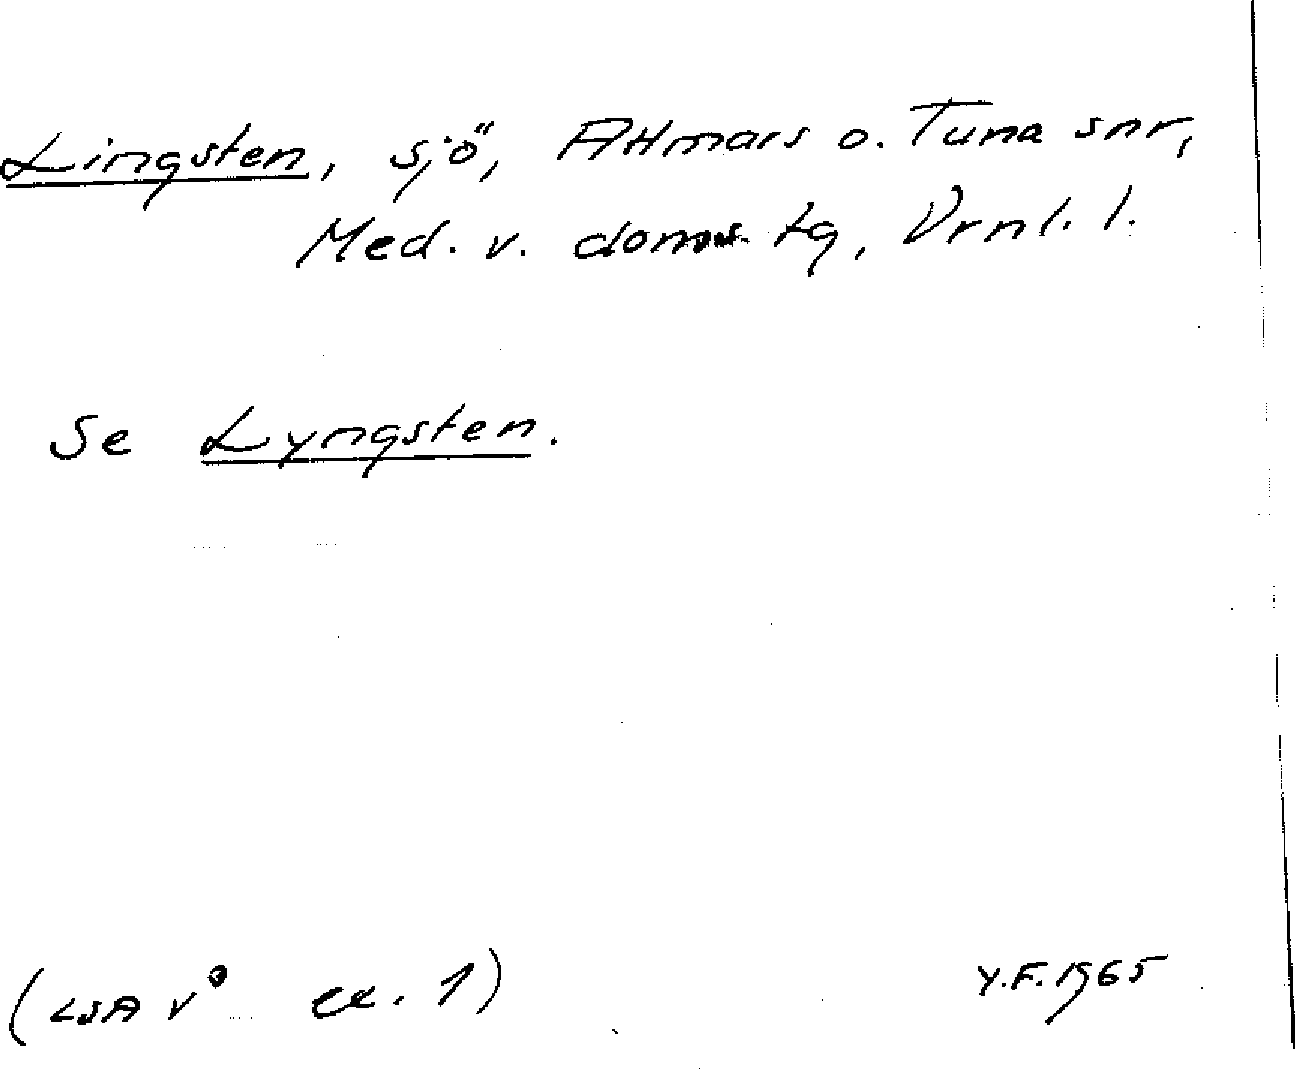 Lingsten, sjö, Attmars o. Tuna snr,
Med. v. doms. tg, Vrnl. l.
Se Lyngsten.
(LSA V° ex. 1)
Y.F. 1965